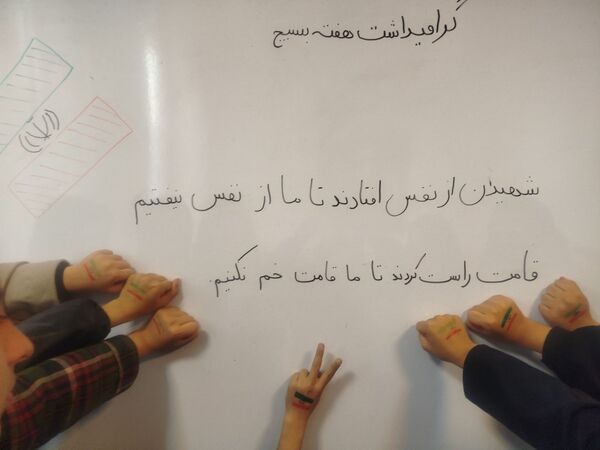 گرامیداشت هفته بسیج
شهیدان از نفس افتادند تا ما از نفس نیفتیم
قامت راست کردند تا ما قامت خم نکنیم.